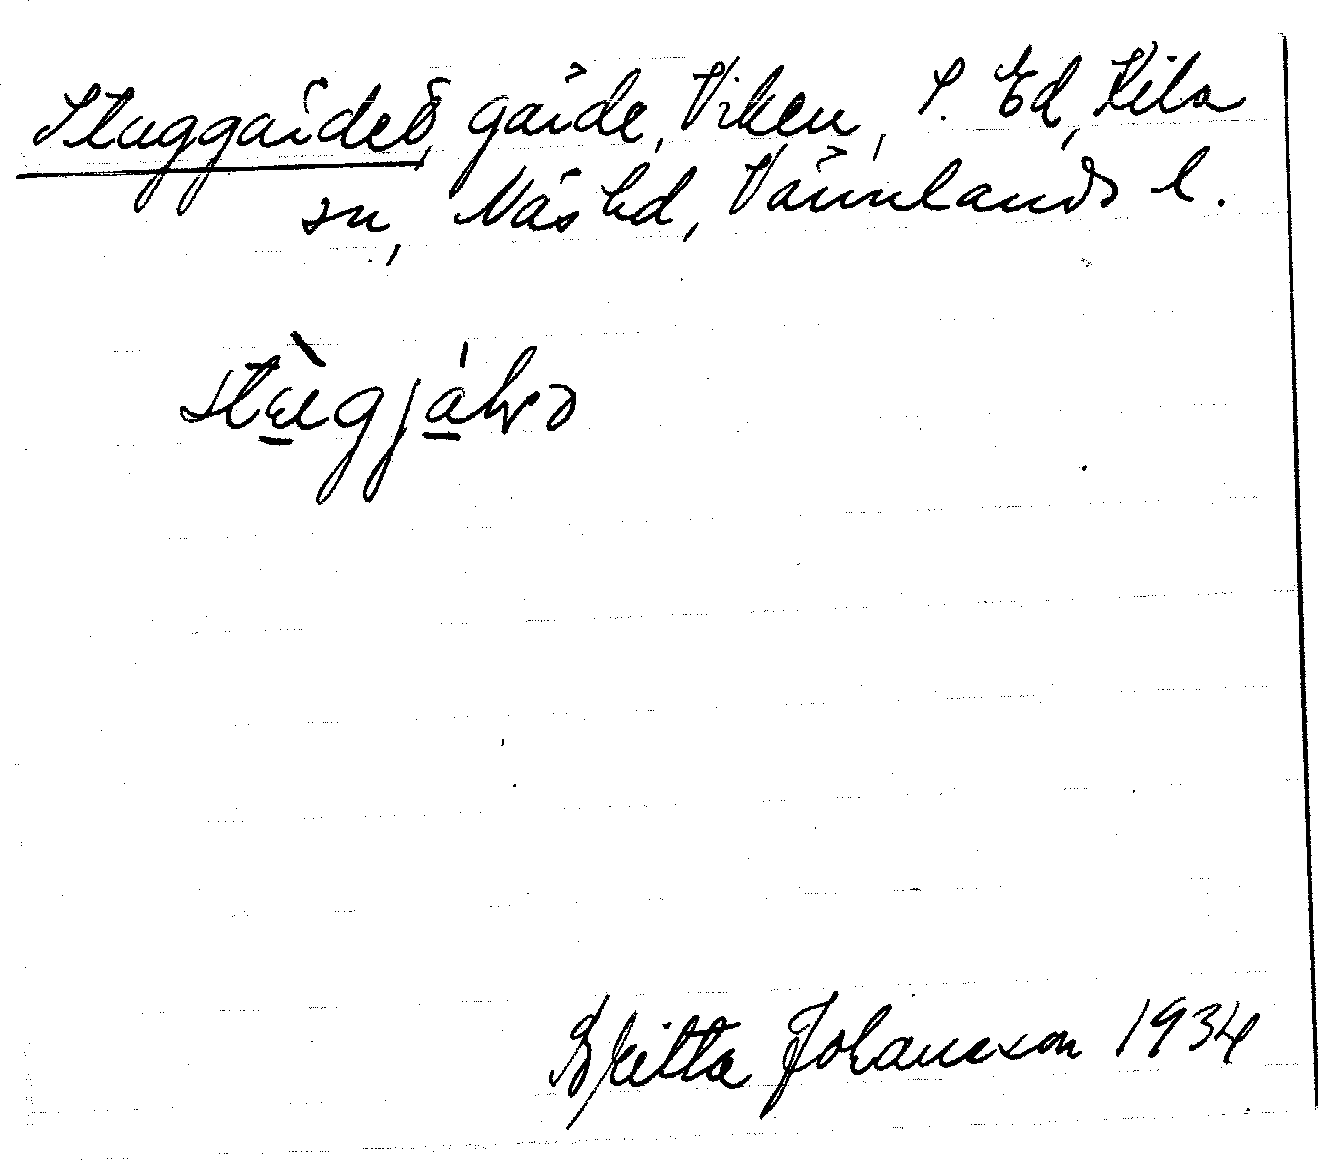 Stuggärdet, gärde, Viken, S. Ed, Kila
sn, Näs hd, Värmlands l.
Britta Johansson 1934